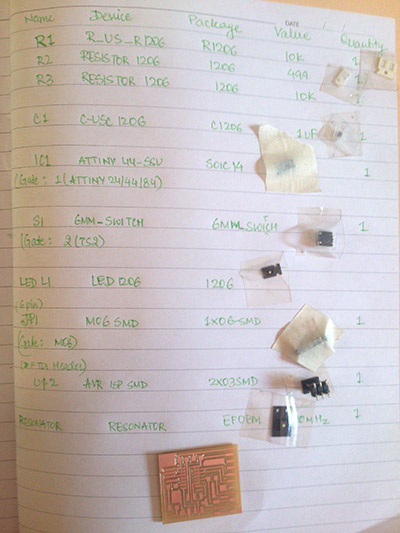 Name Device Package DATE Value Quantity
R1 R_US_R1206 R1206 10K 1
R2 RESISTOR 1206 1206 499 1
R3 RESISTOR 1206 1206 10K 1
C1 C-USC 1206 C1206 1UF 1
IC1 ATTINY 44-SSU SOIC14 1
(Gate: 1(ATTINY 24/44/84)
S1 6MM-SWITCH 6MM_SWITCH 1
(Gate: 2(TS2)
LED L1 LED 1206 1206
(6pin)
JP1 M06 SMD 1X06-SMD 1
(Gate: M06)
Header)
AVR ISP SMD 2X03SMD 1
RESONATOR RESONATOR EFOBM 0MHz 1